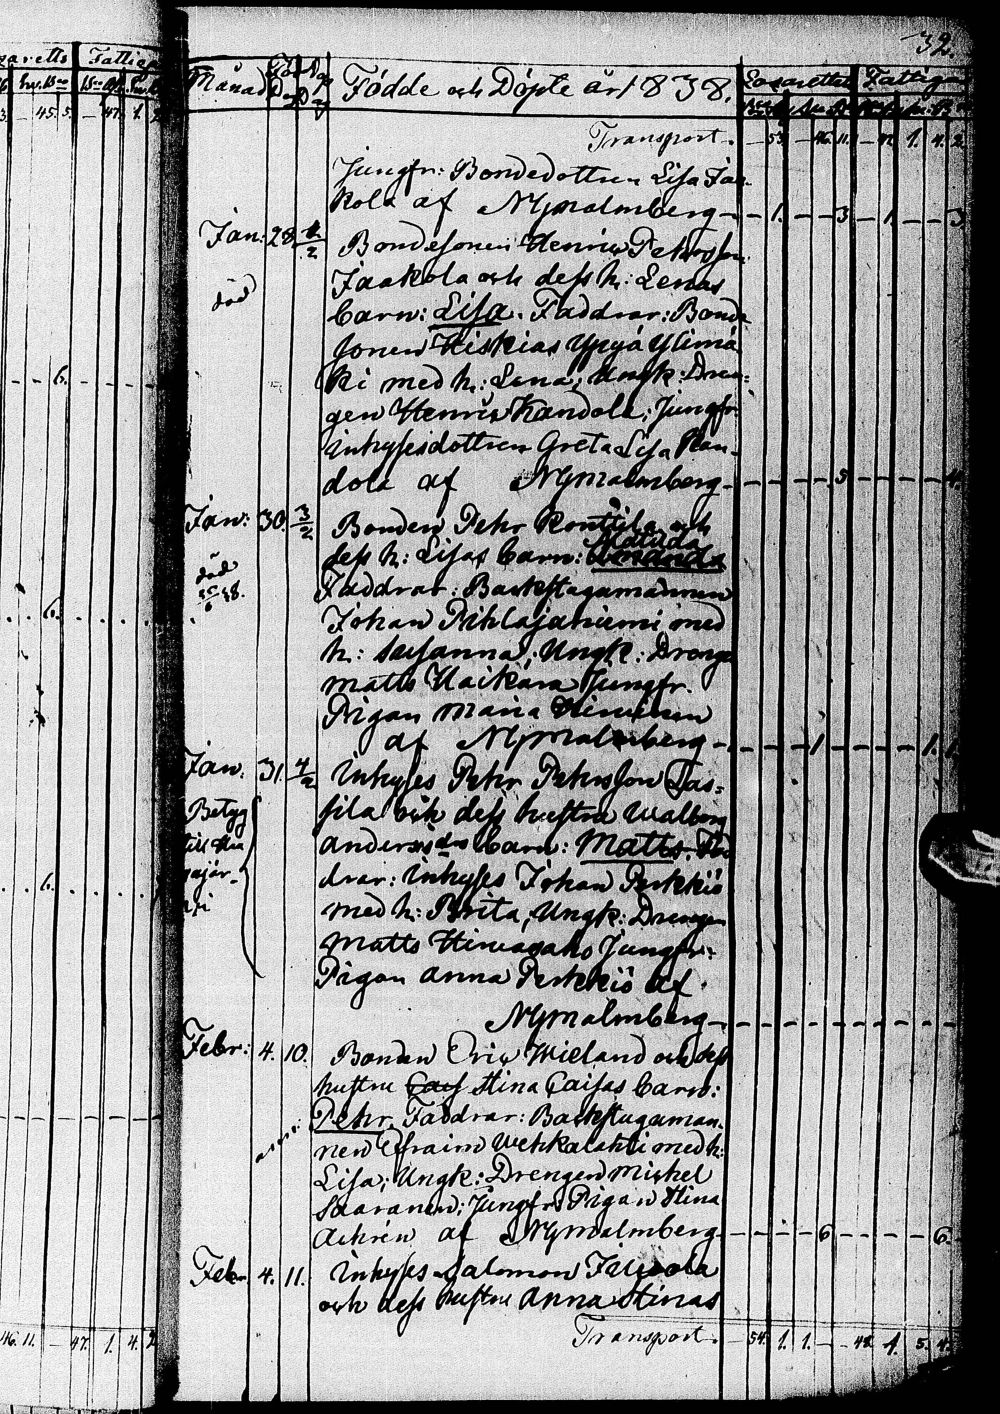 32.
Månad Född Dag Döpt Dag Födde och Döpte år 1838. Lazarettet Fattige
Transport. 53. 46. 11. 1. 4. 2.
Jungfr: Bondedottren Lisa Jaa-
kola af NyMalmberg 1. 3 1 3
Jan: 28 1/2 Bondesonen Henric Pehrsson
Jaakola och dess h: Lenas
död
barn: Lisa. Faddrar: Bonde
sonen Hiskias Yrjä Ylimä
ki med h: Lena; Ungk: Dren-
gen Henric Kandola; Jungfr:
inhysesdottren Greta Lisa Kan-
dola af NyMalmberg 3 4.
Jan: 30. 3/2 Bonden Pehr Konttila och
Matilda
dess h: Lisas barn: Amanda
död
Faddrar: Backstugamannen
Johan Pihlajaniemi med
h: Susanna; Ungk: Dreng
Matts Haikara Jungfr.
Pigan Maria Hirvinen
af NyMalmberg 1 1. 1.
Jan. 31. 4/2 Inhyses Pehr Pehrsson Tas-
sila och dess hustru Walborg
Betyg
Andersdrs barn: Matts. Fad
till
drar: Inhyses Johan Perkkiö
med h: Brita; Ungk: Drengen
Matts Jungfr:
Pigan Anna Perkkiö af
NyMalmberg
Febr: 4. 10. Bonden Eric Wieland och dess
hustru Stina Caisas barn:
Pehr. Faddrar: Backstugaman-
nen Efraim Wehkalahti med h:
Lisa; Ungk: Drengen Mickel
Saaranen; Jungfr: Pigan Stina
af NyMalmberg 6 6.
Febr. 4. 11. Inhyses Salomon
och dess hustru Anna Stinas
Transport. 54. 1. 1. 48. 1. 5. 4.